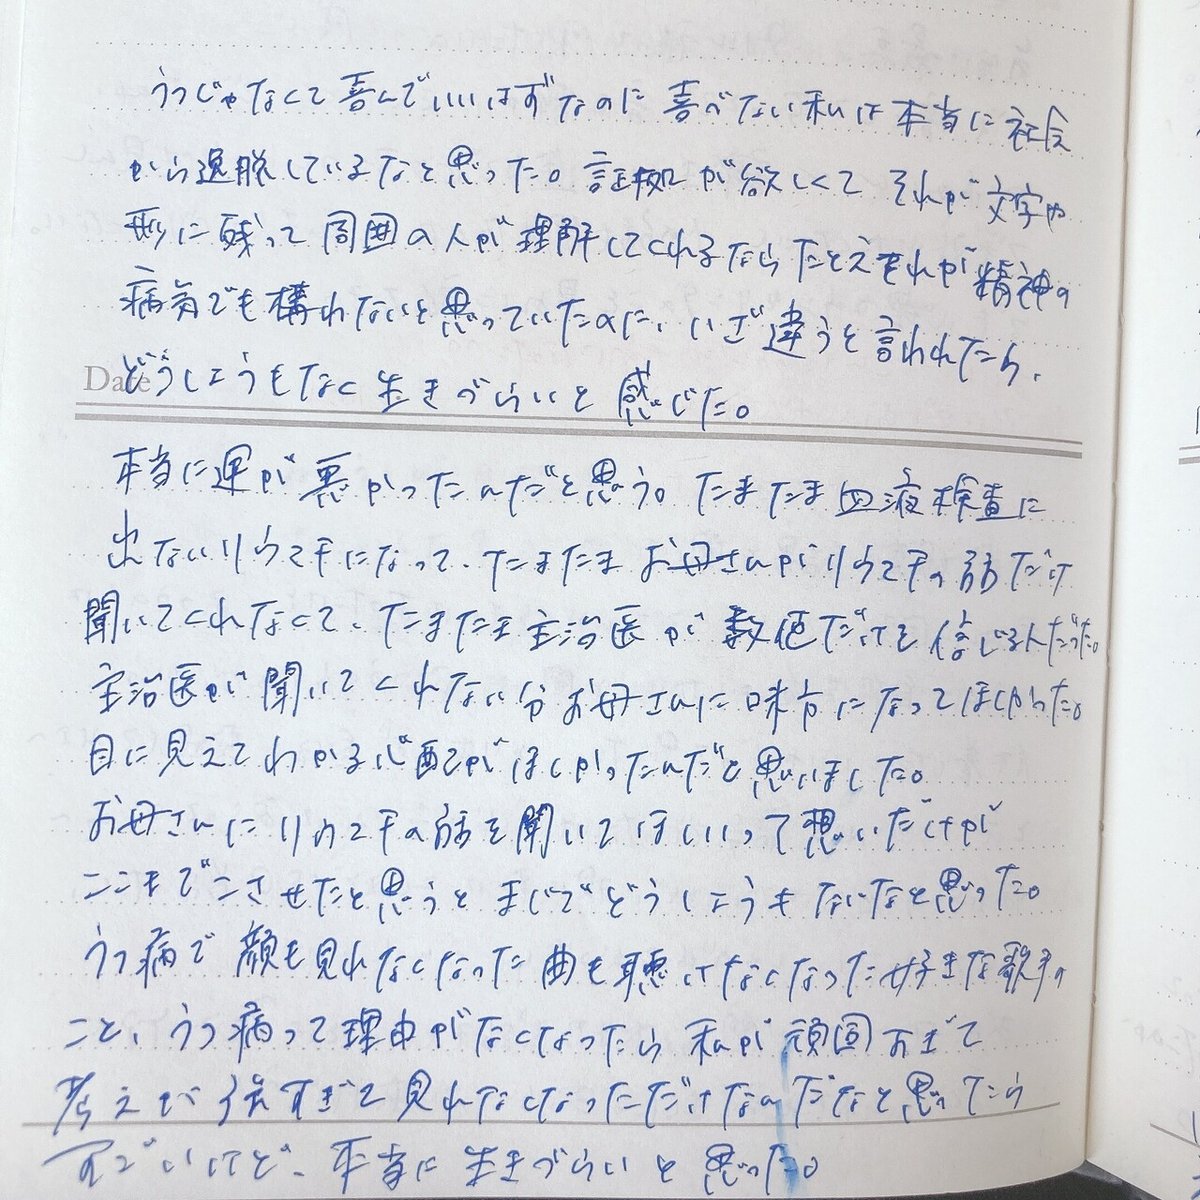 うつじゃなくて喜んでいいはずなのに喜べない私は本当に社会
から逸脱しているなと思った。証拠が欲しくてそれが文字や
形に残って周囲の人が理解してくれるならたとえそれが精神の
病気でも構わないと思っていたのに、いざ違うと言われたら、
Date
どうしようもなく生きづらいと感じた。
本当に運が悪かったんだと思う。たまたま血液検査に
出ないリウマチになって、たまたまお母さんがリウマチの話だけ
聞いてくれなくて、たまたま主治医が数値だけを信じる人だった。
主治医が聞いてくれない分お母さんに味方になってほしかった。
目に見えてわかる心配がほしかったんだと思いました。
お母さんにリウマチの話を聞いてほしいって想いだけが
ここまでこさせたと思うとまじでどうしようもないなと思った。
うつ病で顔も見れなくなった曲も聴けなくなった好きな歌手の
こと、うつ病って理由がなくなったら私が頑固すぎて
考えが強すぎて見れなくなっただけなんだなと思ったら
すごいけど、本当に生きづらいと思った。